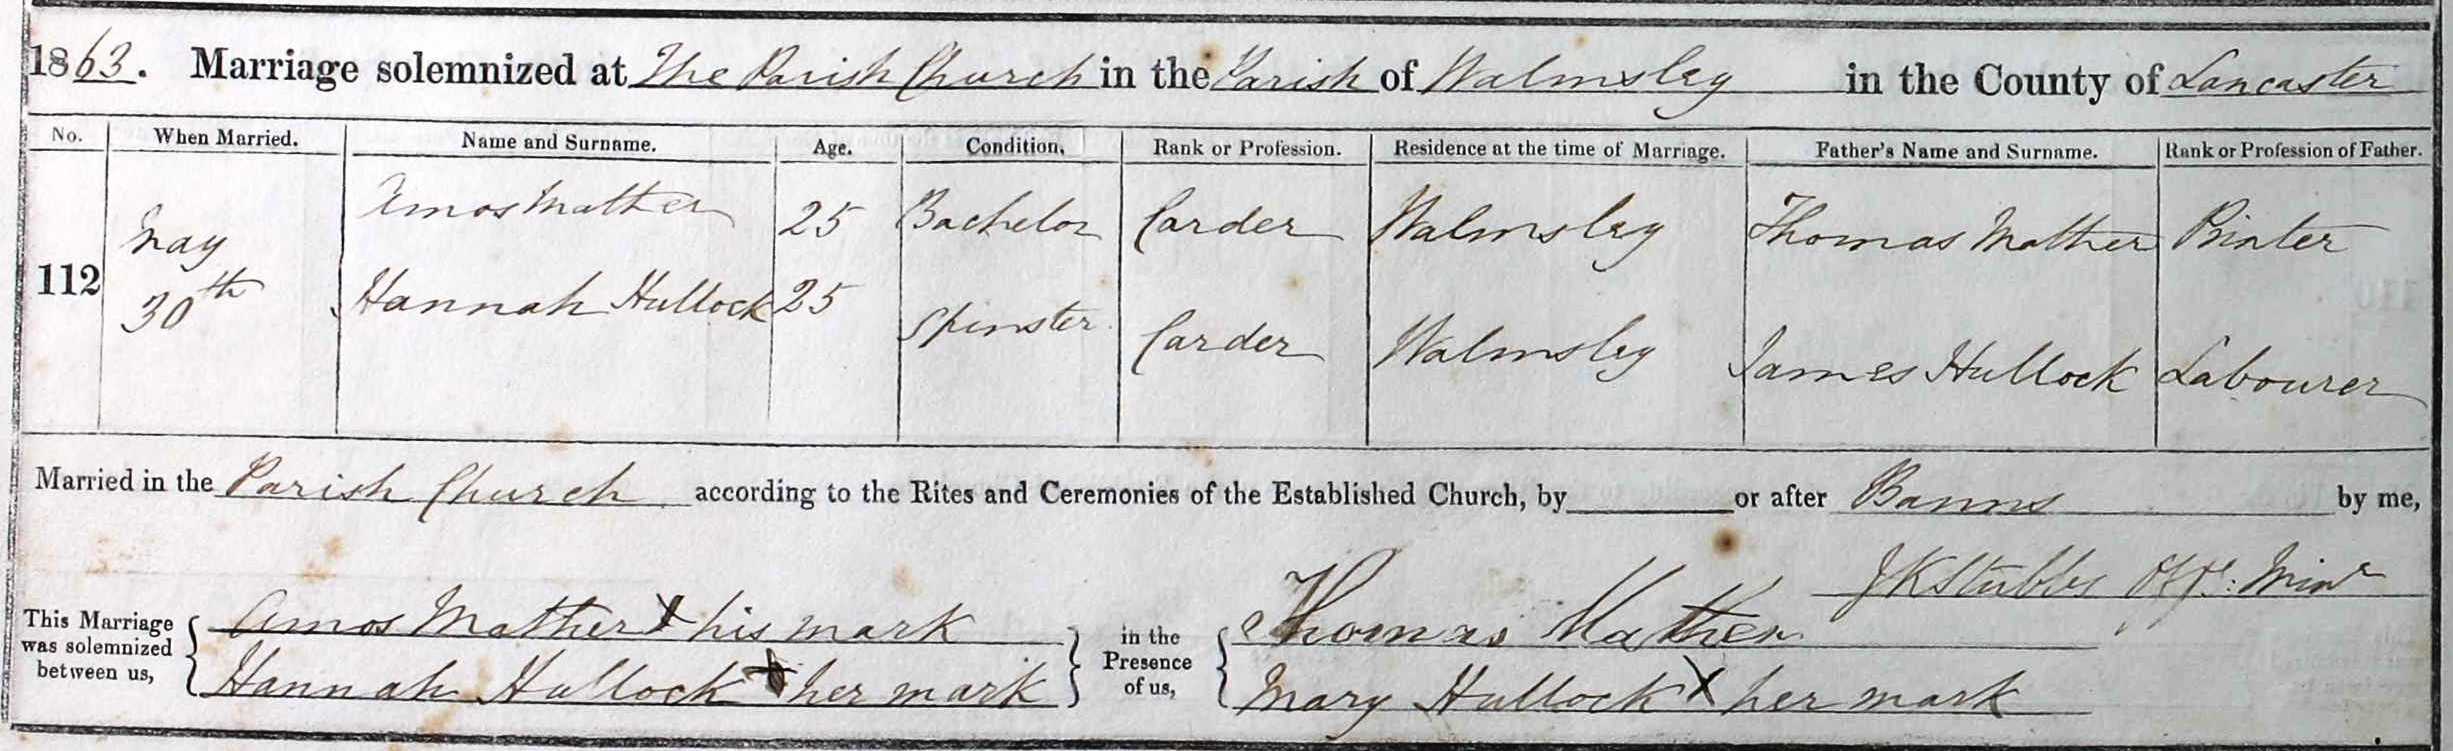 1863. Marriage solemnized at The Parish Church in the Parish of Walmsley in the County of Lancaster
No. When Married. Name and Surname. Age. Condition. Rank or Profession. Residence at the time of Marriage. Father's Name and Surname. Rank or Profession of Father.
112 May 30th Amos Mather 25 Bachelor Carder Walmsley Thomas Mather Printer
Hannah Hullock 25 Spinster Carder Walmsley James Hullock Labourer
Married in the Parish Church according to the Rites and Ceremonies of the Established Church, by or after Banns by me,
J K Stubbs Offg: Minr
This Marriage was solemnized between us, Amos Mather X his mark in the Presence of us, Thomas Mather
Hannah Hullock X her mark Mary Hullock X her mark